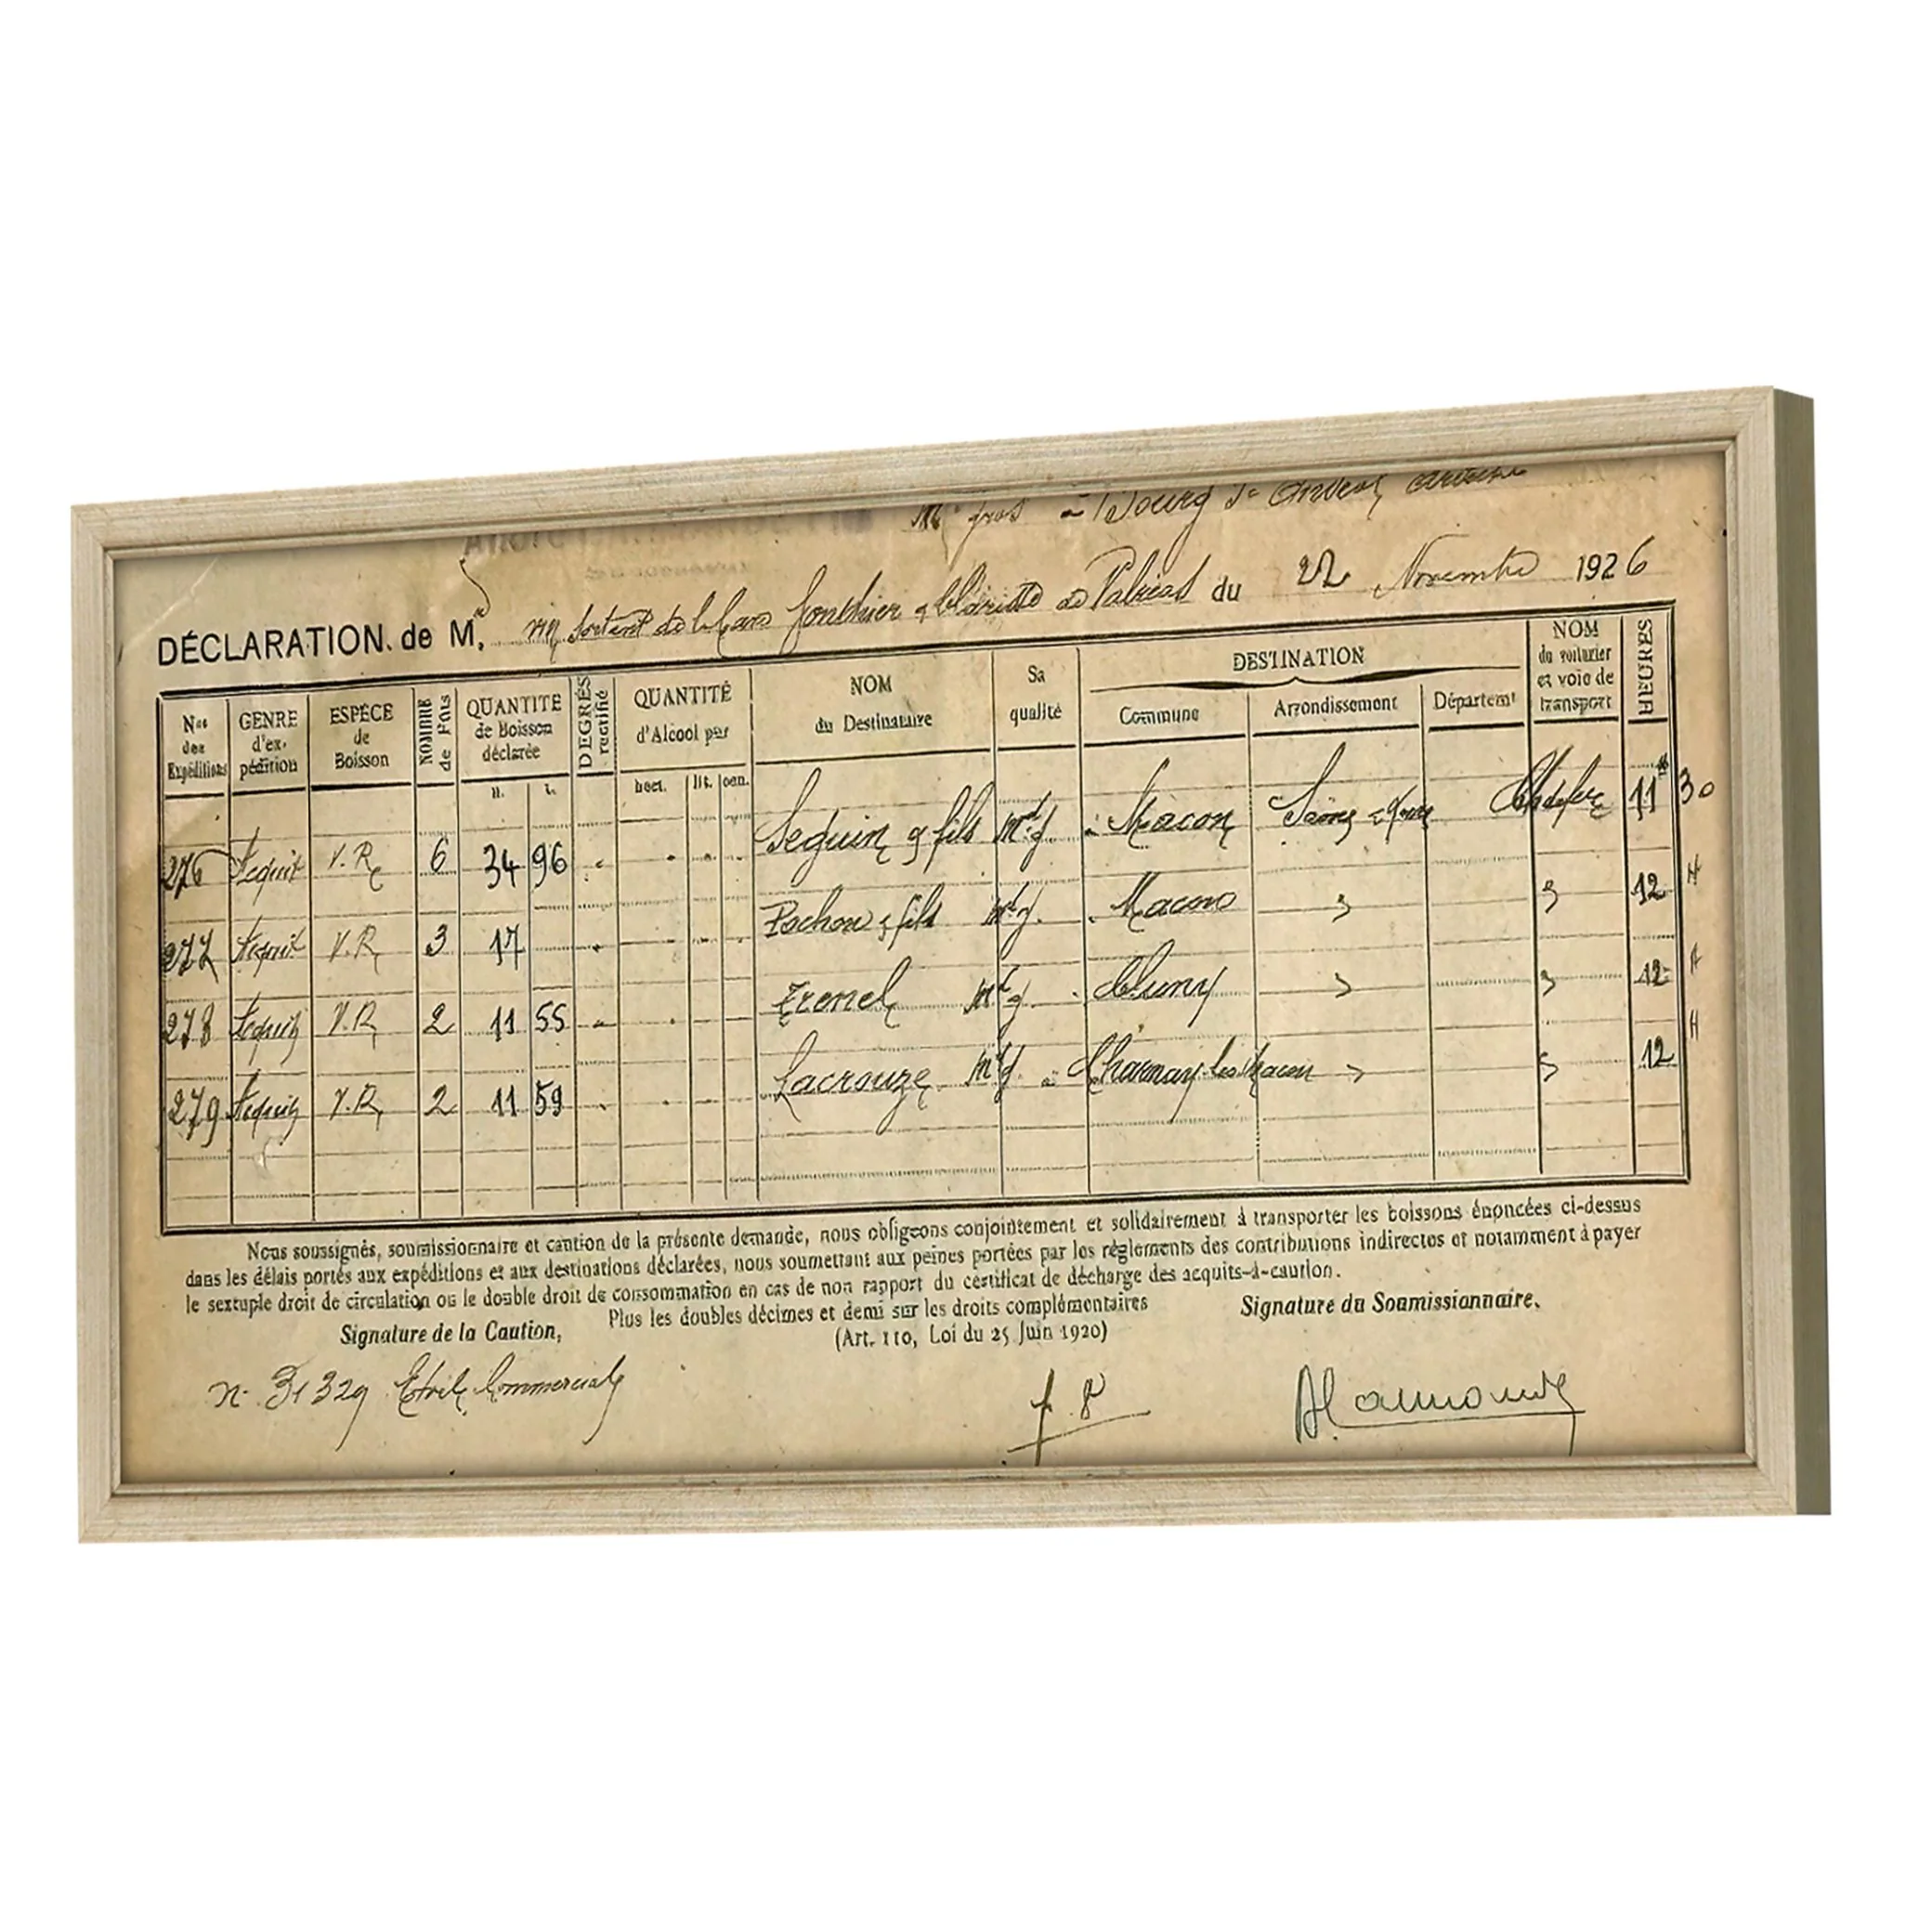 Mᵈ gros à Bourg Sᵗ Andéol Ardèche
DÉCLARATION. de M. vin sortant de la Cave du 22 Novembre 1926
Nos des Expéditions
GENRE d'expédition
ESPÈCE de Boisson
NOMBRE de Fûts
QUANTITÉ de Boisson déclarée
DEGRÉS rectifié
QUANTITÉ d'Alcool par
NOM du Destinataire
Sa qualité
DESTINATION
Commune
Arrondissement
Départemt
NOM du voiturier et voie de transport
HEURES
H. L. hect. lit. cen.
276 Acquit V.R. 6 34 96 Seguin & fils Mᵈ g. à Macon Saône & Loire Ch de fer 11ᴴ 30
277 Acquit V.R. 3 17 Pochon & fils Mᵈ g. à Macon " " 12 H
278 Acquit V.R. 2 11 55 Trenel Mᵈ g. à Cluny " " 12 H
279 Acquit V.R. 2 11 59 Lacrouze Mᵈ g. à Charnay les Macon " " 12 H
Nous soussignés, soumissionnaire et caution de la présente demande, nous obligeons conjointement et solidairement à transporter les boissons énoncées ci-dessus
dans les délais portés aux expéditions et aux destinations déclarées, nous soumettant aux peines portées par les règlements des contributions indirectes et notamment à payer
le sextuple droit de circulation ou le double droit de consommation en cas de non rapport du certificat de décharge des acquits-à-caution.
Plus les doubles décimes et demi sur les droits complémentaires
(Art. 110, Loi du 25 Juin 1920)
Signature de la Caution,
Signature du Soumissionnaire.
n. 31329